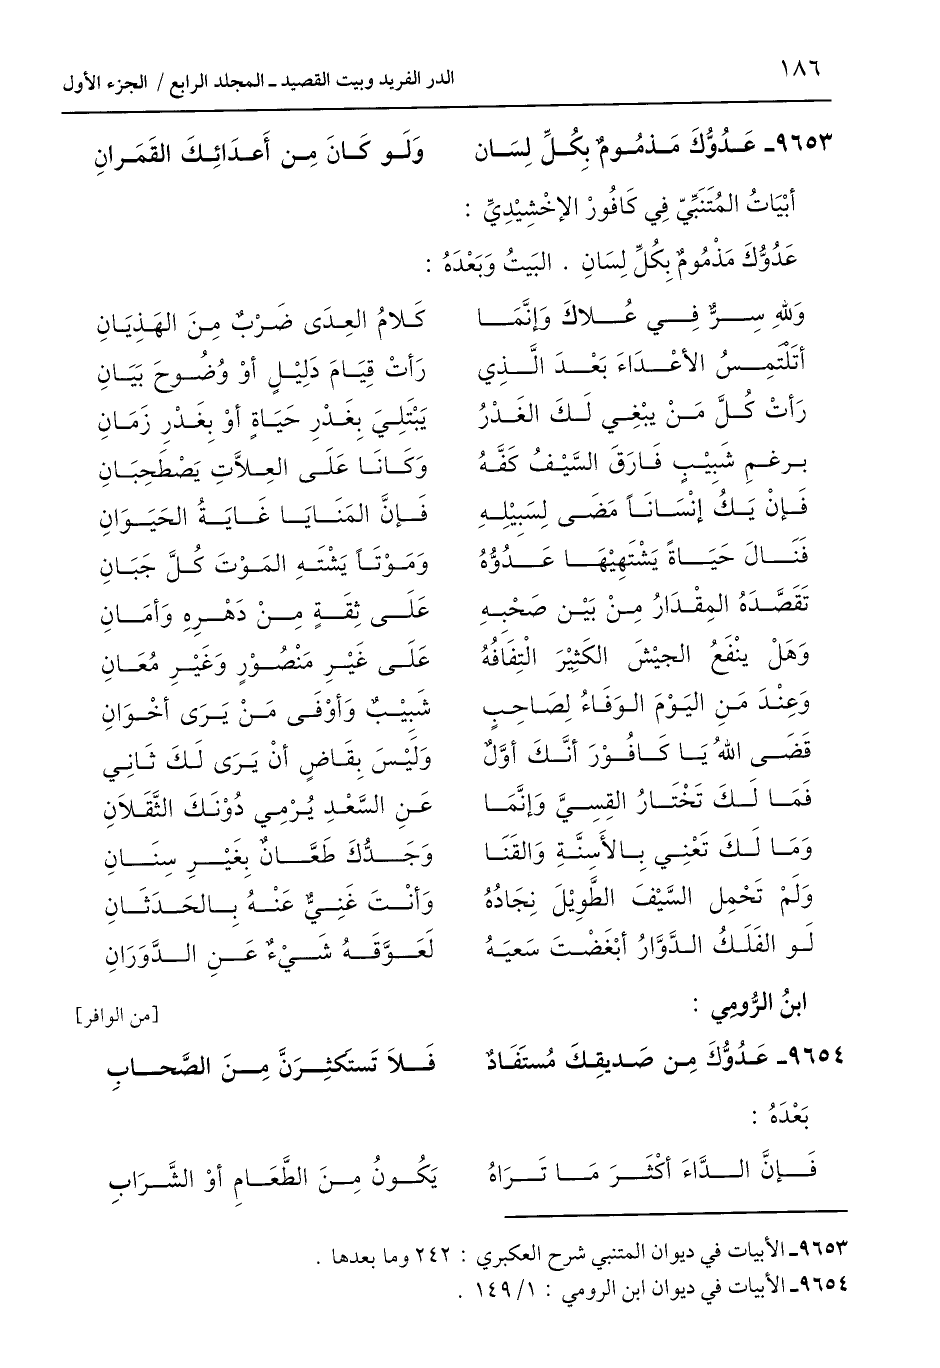 ١٨٦
الدر الفريد وبيت القصيد ـ المجلد الرابع / الجزء الأول
٩٦٥٣ـ عَدُوُّكَ مَذمُومٌ بِكُلِّ لِسَانِ وَلَو كَانَ مِن أَعدَائِكَ القَمَرانِ
أَبْيَاتُ المُتَنَبِّيّ فِي كَافُورْ الإخْشِيْدِيِّ :
عَدُوُّكَ مَذْمُومٌ بِكُلِّ لِسَانِ . البَيْتُ وَبَعْدَهُ :
وَللهِ سِرٌّ فِي عُلاكَ وَإنَّمَا كَلامُ العِدَى ضَرْبٌ مِنَ الهَذيَانِ
أتَلْتَمِسُ الأعْدَاءَ بَعْدَ الَّذِي رَأتْ قِيَامَ دَلِيْلٍ أوْ وُضُوحَ بَيَانِ
رَأتْ كُلَّ مَنْ يَبْغِي لَكَ الغَدْرُ يَبْتَلِيَ بِغَدْرِ حَيَاةٍ أوْ بِغَدْرِ زَمَانِ
بِرغمِ شَبِيْبٍ فَارَقَ السَّيْفُ كَفَّهُ وَكَانَا عَلَى العِلاَّتِ يَصْطَحِبَانِ
فَإنْ يَكُ إنْسَاناً مَضَى لِسَبِيْلِهِ فَإنَّ المَنَايَا غَايَةُ الحَيَوانِ
فَنَالَ حَيَاةً يَشْتَهِيْهَا عَدُوُّهُ وَمَوْتَاً يَشْتَهِ المَوْتَ كُلَّ جَبَانِ
تَقَصَّدَهُ المِقْدَارُ مِنْ بَيْنِ صَحْبِهِ عَلَى ثِقَةٍ مِنْ دَهْرِهِ وَأمَانِ
وَهَلْ يَنْفَعُ الجَيْشُ الكَثِيْرَ التِفَافَهُ عَلَى غَيْرِ مَنْصُوْرٍ وَغَيْرِ مُعَانِ
وَعِنْدَ مَنِ اليَوْمَ الوَفَاءُ لِصَاحِبٍ شَبِيْبٌ وَأوْفَى مَنْ يَرَى أخْوَانِ
قَضَى اللهُ يَا كَافُوْرَ أنَّكَ أوَّلٌ وَلَيْسَ بِقَاضٍ أنْ يَرَى لَكَ ثَانِي
فَمَا لَكَ تَخْتَارُ القِسِيَّ وَإنَّمَا عَنِ السَّعْدِ يُرْمِي دُوْنَكَ الثَّقَلاَنِ
وَمَا لَكَ تَعْنِي بِالأَسِنَّةِ وَالقَنَا وَجَدُّكَ طَعَّانٌ بِغَيْرِ سِنَانِ
وَلَمْ تَحْمِلِ السَّيْفَ الطَّوِيْلَ نِجَادُهُ وَأنْتَ غَنِيٌّ عَنْهُ بِالحَدثَانِ
لَو الفَلَكُ الدَّوَّارُ أبْغَضْتَ سَعيَهُ لَعَوَّقَهُ شَيْءٌ عَنِ الدَّوَرَانِ
ابنُ الرُّومِي : [من الوافر]
٩٦٥٤ـ عَدُوُّكَ مِن صَدِيقِكَ مُستَفَادٌ فَلاَ تَستَكثِرَنَّ مِنَ الصَّحَابِ
بَعْدَهُ :
فَإنَّ الدَّاءَ أكْثَرَ مَا تَرَاهُ يَكُونُ مِنَ الطَّعَامِ أوْ الشَّرَابِ
٩٦٥٣ـ الأبيات في ديوان المتنبي شرح العكبري : ٢٤٢ وما بعدها .
٩٦٥٤ـ الأبيات في ديوان ابن الرومي : ١/ ١٤٩ .